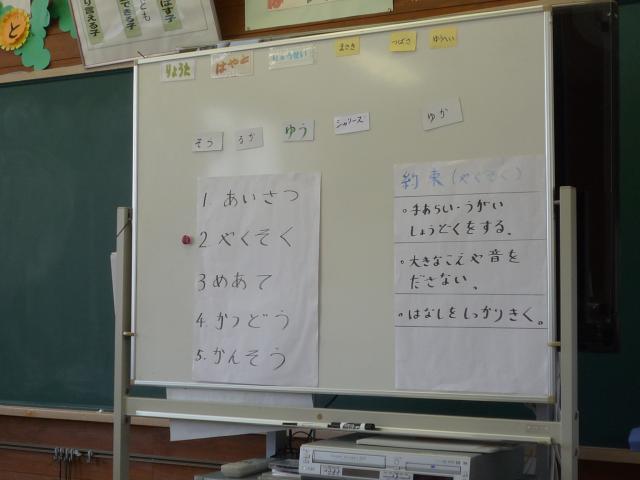 と
りょうた
はやと
りゅうせい
まさき
つばさ
ゆうへい
そう
るか
ゆう
シャリーズ
ゆか
1 あいさつ
2 やくそく
3 めあて
4. かつどう
5. かんそう
約束(やくそく)
・手あらい・うがい
しょうどくをする。
・大きなこえや音を
ださない。
・はなしをしっかりきく。